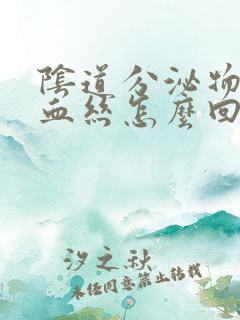 陰道分泌物
血絲怎麼回
汐之秋
未经同意禁止转载